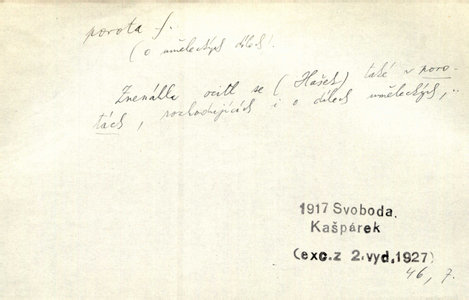 porota f.
(o uměleckých dílech).
Znenáhla ocitl se (Hašek) také v poro-
tách, rozhodujících i o dílech uměleckých, ..
1917 Svoboda,
Kašpárek
(exc. z 2. vyd. 1927)
46, 7.